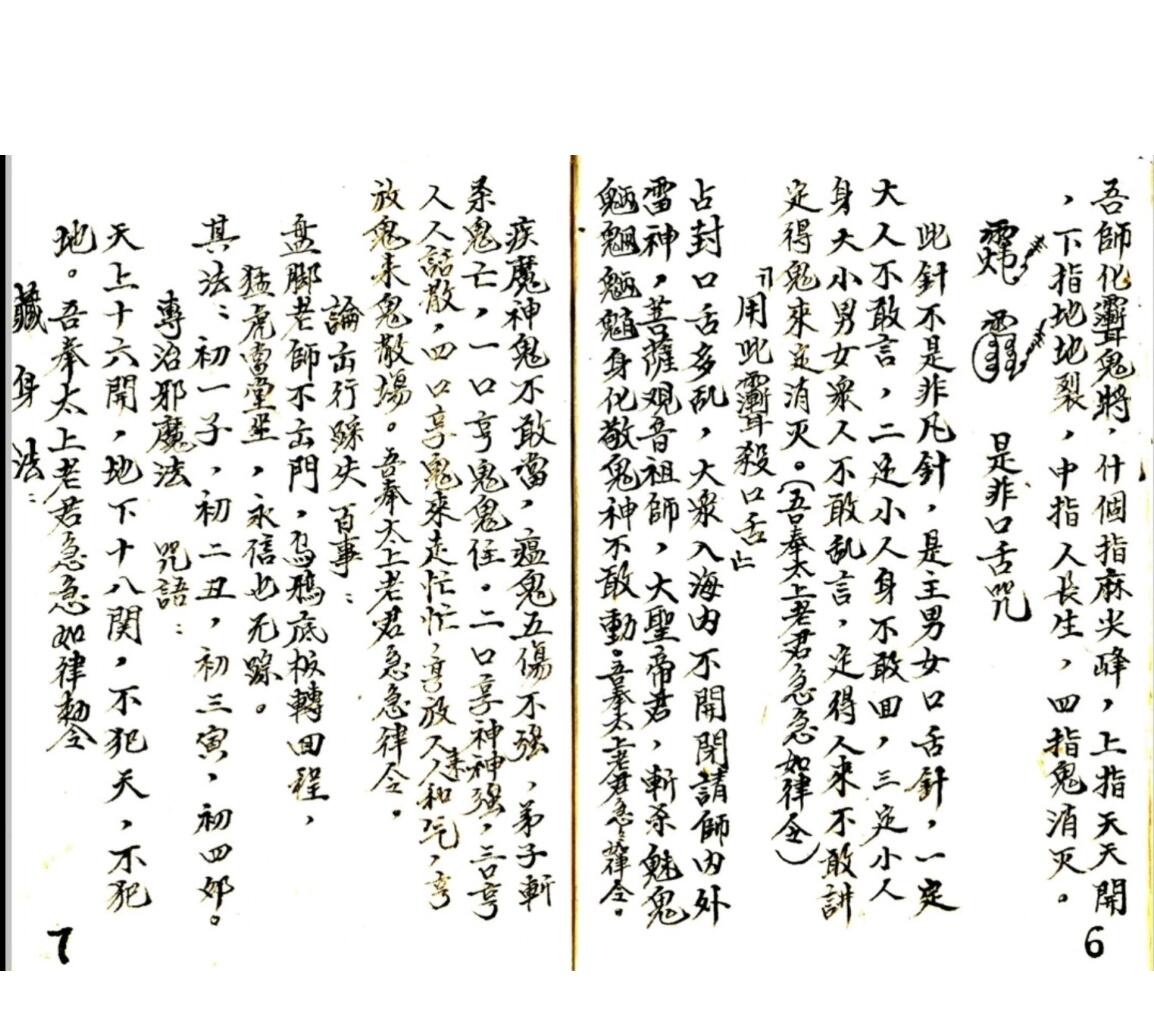 吾師化鬼將，什個指麻尖峰，上指天天開
，下指地地裂，中指人長生，四指鬼消灭。
是非口舌咒
此針不是非凡針，是主男女口舌針，一定
大人不敢言，二定小人身不敢回，三定小人
身大小男女眾人不敢乱言，定得人來不敢讲
定得鬼來定消灭。（吾奉太上老君急急如律令）
用此殺口舌
占封口舌多乱，大眾入海内不開閉請師内外
雷神，菩薩观音祖師，大聖帝君，斬杀魅鬼
身化敬鬼神不敢動。吾奉太上老君急々律令。
6
疾魔神鬼不敢當，瘟鬼五傷不强，弟子斬
杀鬼亡，一口亨鬼鬼住。二口亨神神强，三口亨
人人話散，四口亨鬼來走忙忙，亨放人人來和气，亨
放鬼來鬼散場。吾奉太上老君急急律令。
論出行踩失百事：
盘脚老師不出門，烏鴉底板轉回程，
猛虎當堂坐，永信也无踪。
其法：初一子，初二丑，初三寅，初四卯。
專治邪魔法 咒語：
天上十六開，地下十八関，不犯天，不犯
地。吾奉太上老君急急如律勅令
藏身法：
7